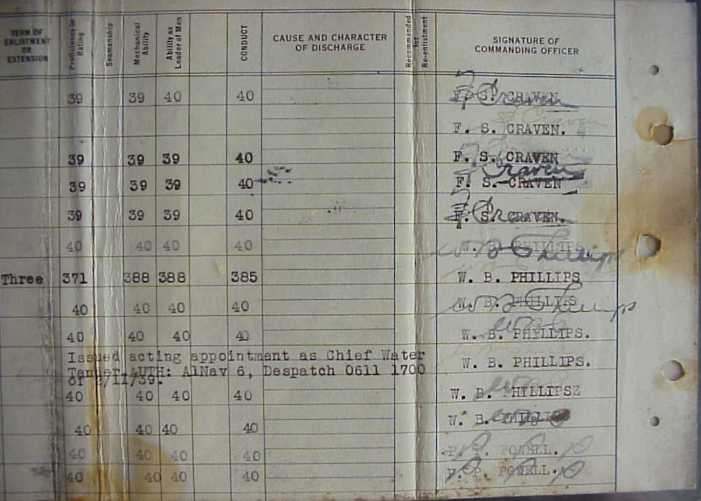 TERM OF ENLISTMENT OR EXTENSION Proficiency in Rating Seamanship Mechanical Ability Ability as Leader of Men CONDUCT CAUSE AND CHARACTER OF DISCHARGE Recommended for Re-enlistment SIGNATURE OF COMMANDING OFFICER
39 39 40 40 F. S. CRAVEN
F. S. CRAVEN.
39 39 39 40 F. S. CRAVEN
39 39 39 40 F. S. CRAVEN
39 39 39 40 F. S. CRAVEN.
40 40 40 40 W. B. PHILLIPS
Three 371 388 388 385 W. B. PHILLIPS
40 40 40 40 W. B. Phillips
40 40 40 40 W. B. PHILLIPS.
Issued acting appointment as Chief Water
Tender AUTH: AlNav 6, Despatch 0611 1700 W. B. PHILLIPS.
of /11/39.
40 40 40 40 W. B. PHILLIPSZ
40 40 40 40 W. B.
40 40 40 40 POWELL.
40 40 40 40 POWELL.